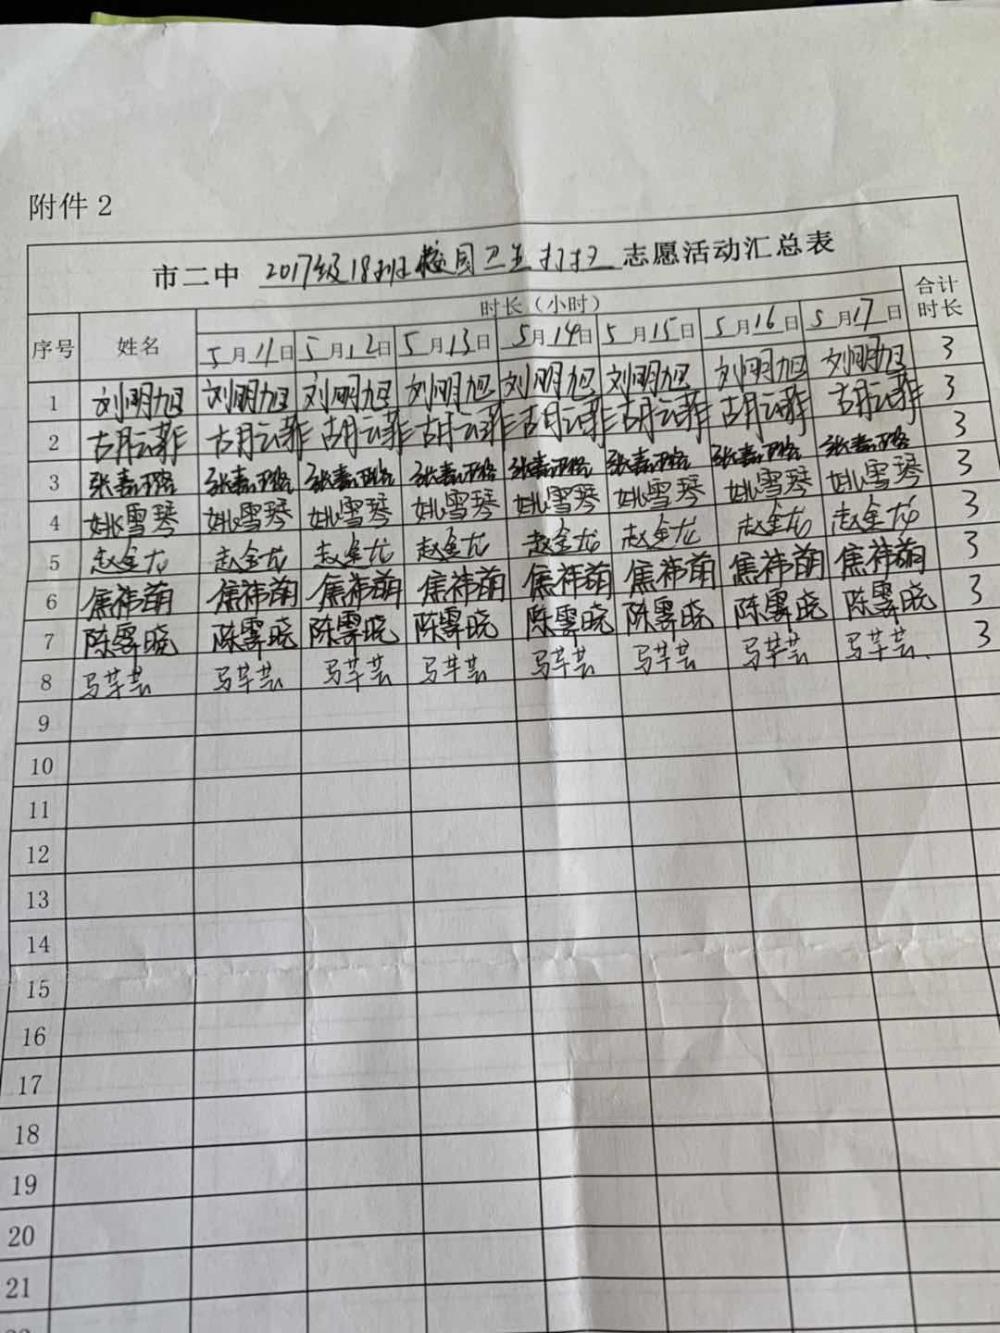 附件2
市二中 2017级18班校园卫生打扫 志愿活动汇总表
序号 姓名 时长（小时） 合计时长
5月11日 5月12日 5月13日 5月14日 5月15日 5月16日 5月17日
1 刘明旭 刘明旭 刘明旭 刘明旭 刘明旭 刘明旭 刘明旭 刘明旭 3
2 胡云菲 胡云菲 胡云菲 胡云菲 胡云菲 胡云菲 胡云菲 胡云菲 3
3 张嘉璐 张嘉璐 张嘉璐 张嘉璐 张嘉璐 张嘉璐 张嘉璐 张嘉璐 3
4 姚雪琴 姚雪琴 姚雪琴 姚雪琴 姚雪琴 姚雪琴 姚雪琴 姚雪琴 3
5 赵金龙 赵金龙 赵金龙 赵金龙 赵金龙 赵金龙 赵金龙 赵金龙 3
6 焦祎萌 焦祎萌 焦祎萌 焦祎萌 焦祎萌 焦祎萌 焦祎萌 焦祎萌 3
7 陈霁晓 陈霁晓 陈霁晓 陈霁晓 陈霁晓 陈霁晓 陈霁晓 陈霁晓 3
8 马芊芸 马芊芸 马芊芸 马芊芸 马芊芸 马芊芸 马芊芸 马芊芸 3
9
10
11
12
13
14
15
16
17
18
19
20
21